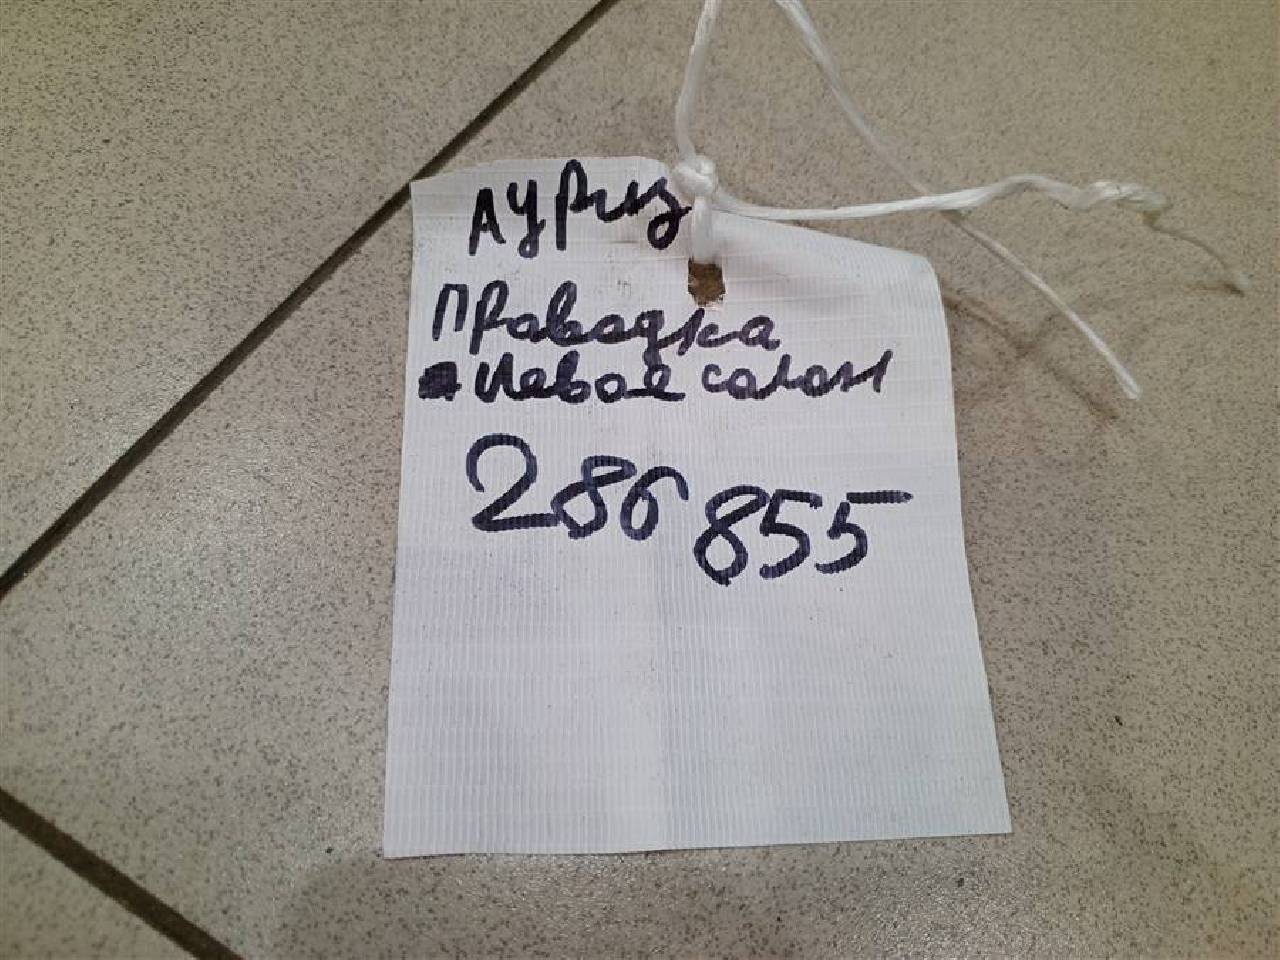 Аурис
Проводка
Левое салон
286855